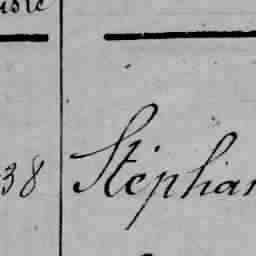 38 Stéphan